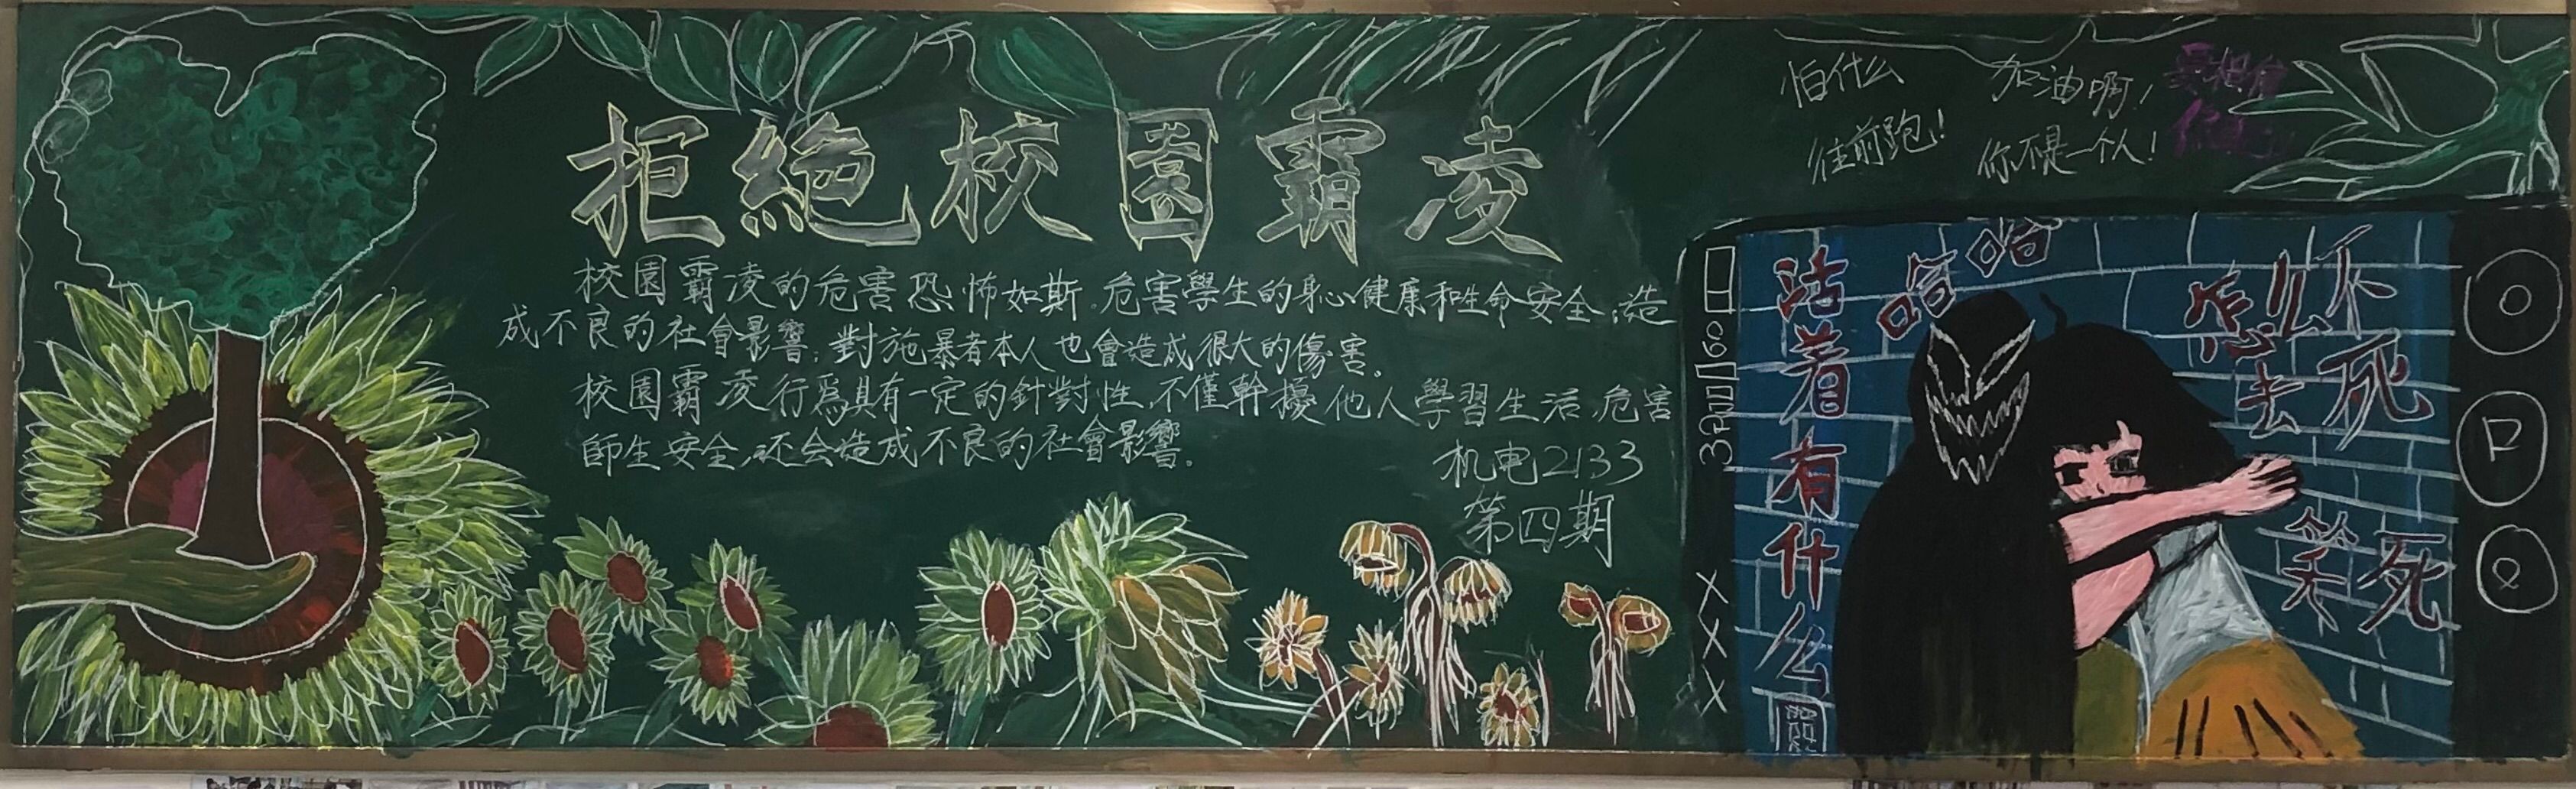 拒絶校園霸凌
校園霸凌的危害恐怖如斯.危害學生的身心健康和生命安全,造
成不良的社會影響;對施暴者本人也會造成很大的傷害。
校園霸凌行爲具有一定的針對性,不僅幹擾他人學習生活,危害
師生安全,还会造成不良的社會影響.
机电2133
第四期
怕什么
往前跑!
加油啊!
你不是一个人!
要相信
活着有什么
哈哈
怎么不
去死
笑死